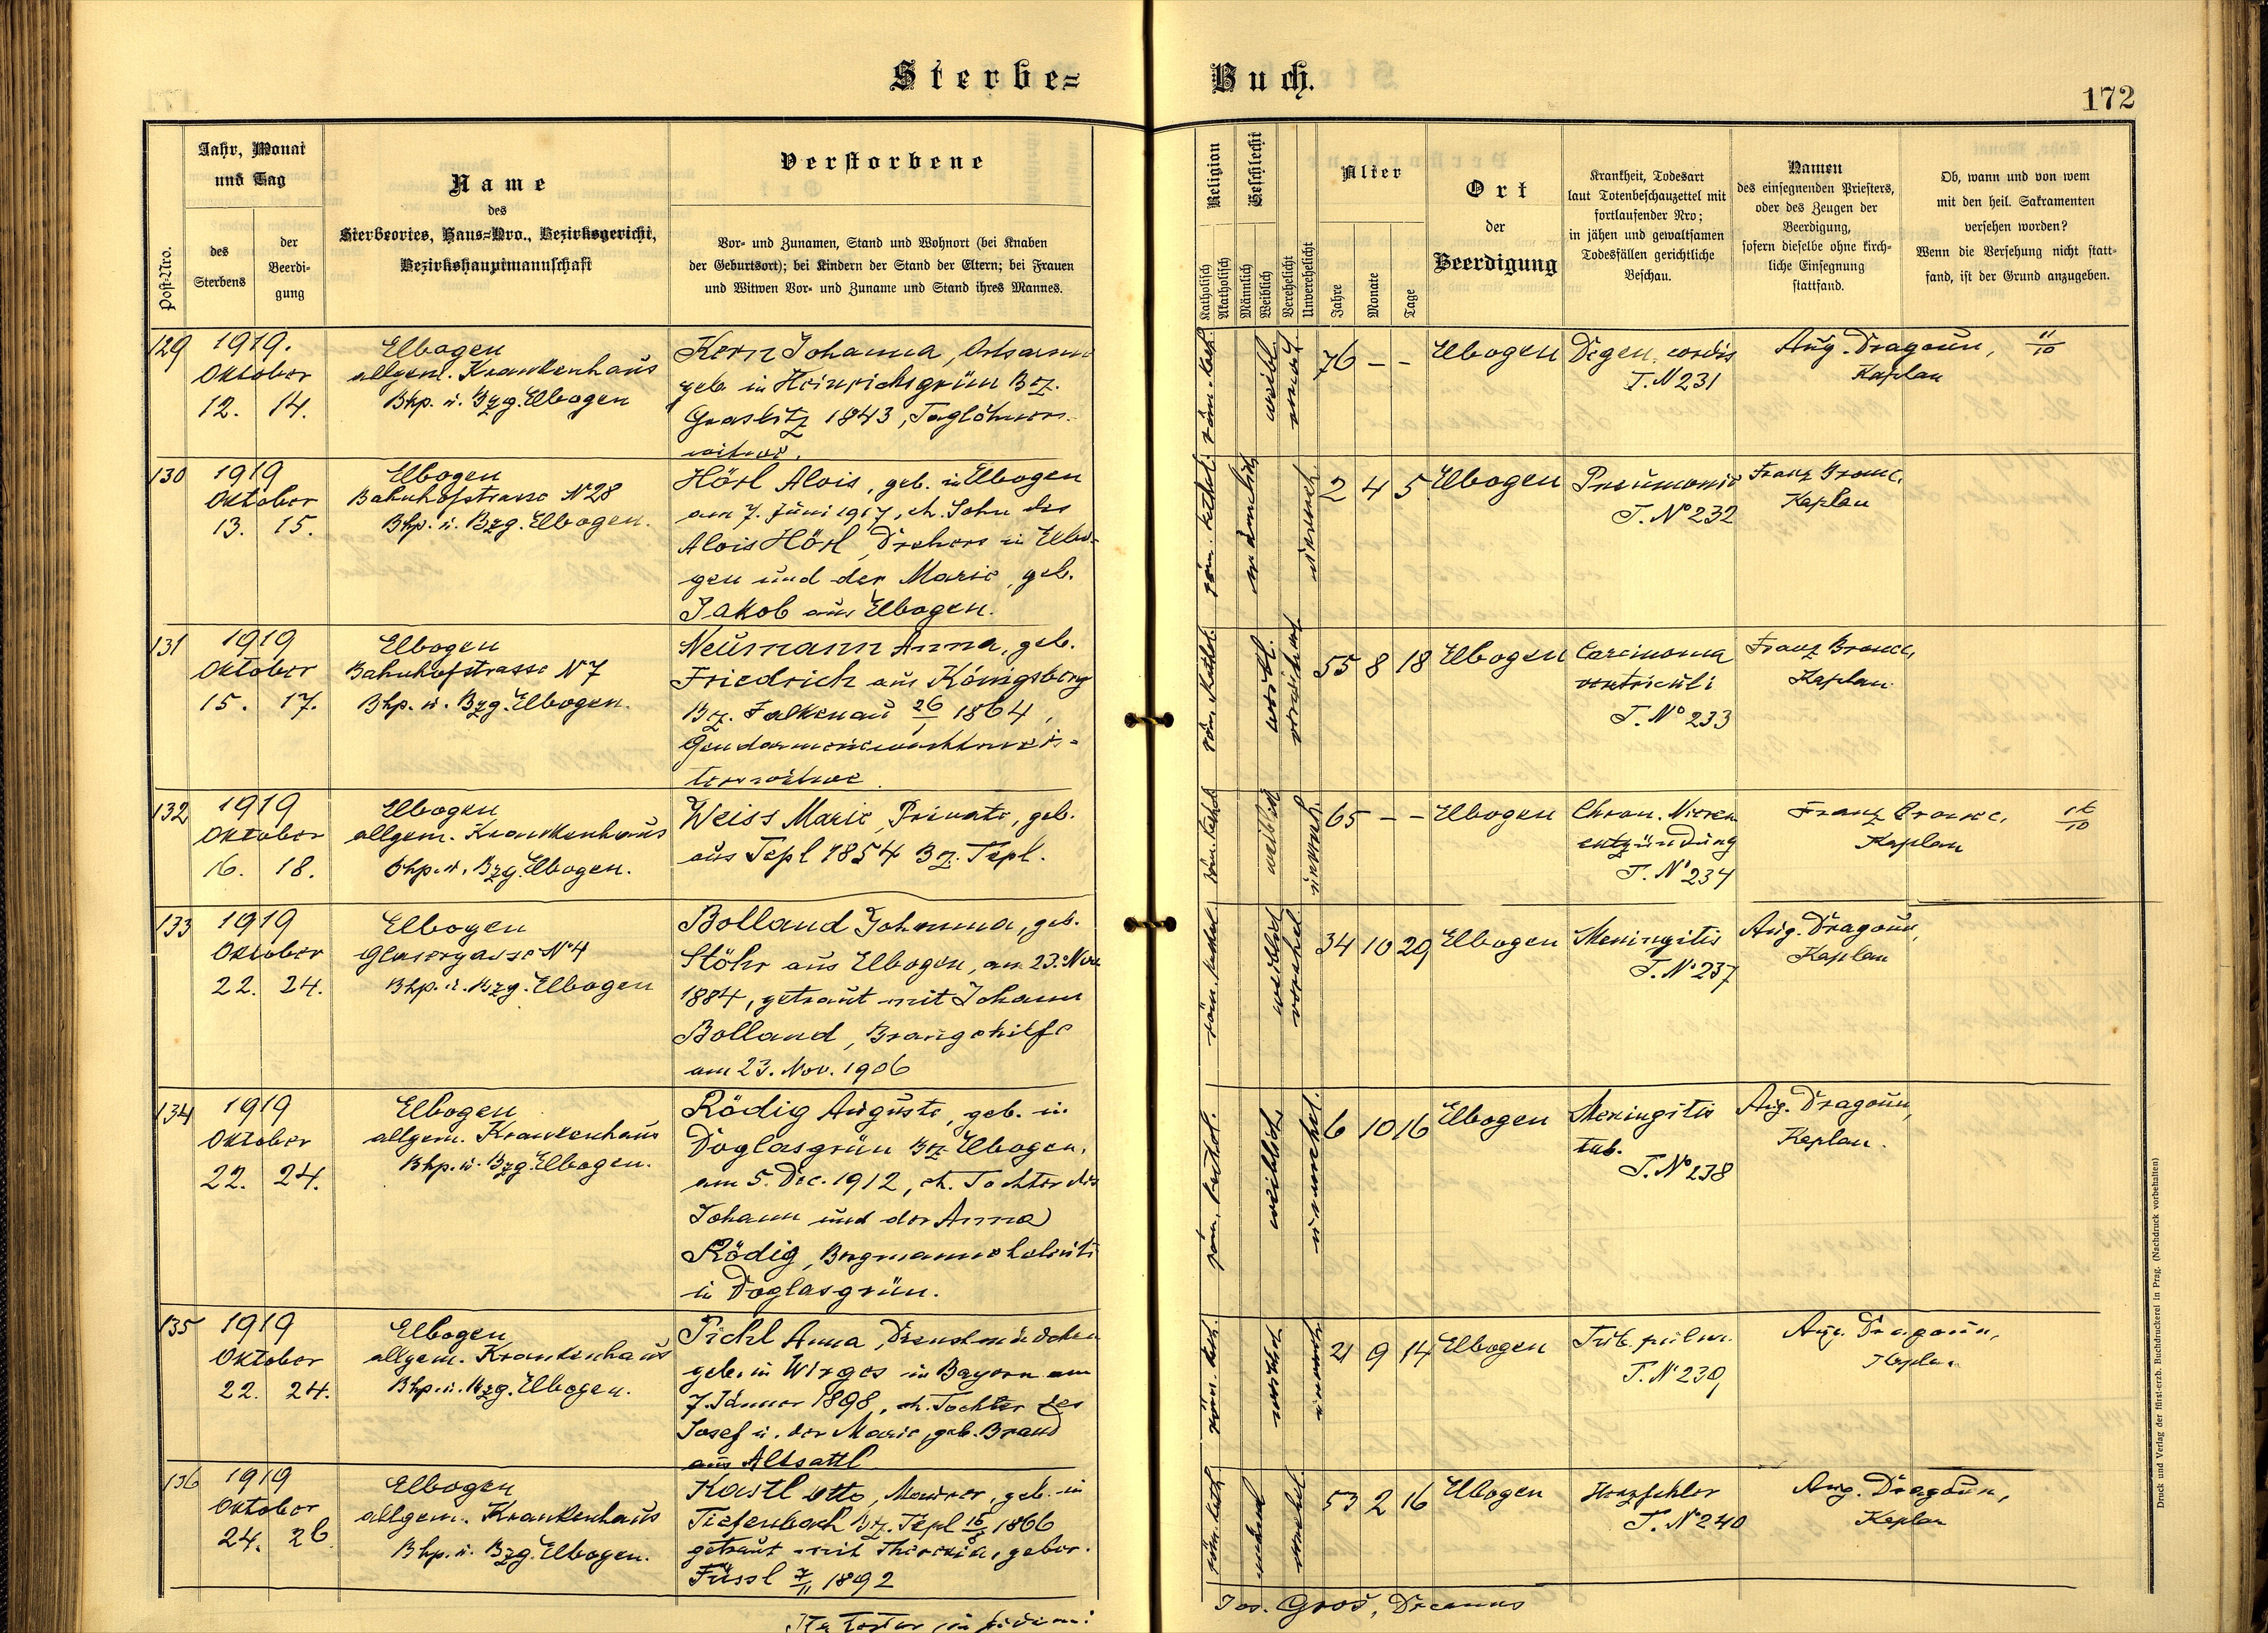 Sterbe=
Buch.
172
Post-Nro.
Jahr, Monat
und Tag
des
Sterbens
der
Beerdi-
gung
Name
des
Sterbeortes, Haus=Nro., Bezirksgericht,
Bezirkshauptmannschaft
Verstorbene
Vor- und Zunamen, Stand und Wohnort (bei Knaben
der Geburtsort); bei Kindern der Stand der Eltern; bei Frauen
und Witwen Vor- und Zuname und Stand ihres Mannes.
Religion
Katholisch
Akatholisch
Geschlecht
Männlich
Weiblich
Verehelicht
Unverehelicht
Alter
Jahre
Monate
Tage
Ort
der
Beerdigung
Krankheit, Todesart
laut Totenbeschauzettel mit
fortlaufender Nro;
in jähen und gewaltsamen
Todesfällen gerichtliche
Beschau.
Namen
des einsegnenden Priesters,
oder des Zeugen der
Beerdigung,
sofern dieselbe ohne kirch-
liche Einsegnung
stattfand.
Ob, wann und von wem
mit den heil. Sakramenten
versehen worden?
Wenn die Versehung nicht statt-
fand, ist der Grund anzugeben.
129
1919.
Oktober
12. 14.
Elbogen
allgem. Krankenhaus
Bhp. u. Bzg. Elbogen
Kern Johanna,
geb. in Heinrichsgrün Bz.
Graslitz 1843, Taglöhners-
witwe.
röm. kath.
weibl.
76 – –
Elbogen
Degen. cordis
T. N 231
Aug. Dragoun,
Kaplan
11/10
130
1919
Oktober
13. 15.
Elbogen
Bahnhofstrasse N° 28
Bhp. u. Bzg. Elbogen.
Hörl Alois, geb. in Elbogen
am 7. Juni 1917, eh. Sohn des
Alois Hörl, Drehers in Elbo-
gen und der Marie, geb.
Jakob aus Elbogen.
röm. kathol.
männlich
unvereh.
2 4 5
Elbogen
Pneumonie
T. N° 232
Franz
Kaplan
131
1919
Oktober
15. 17.
Elbogen
Bahnhofstrasse N° 7
Bhp. u. Bzg. Elbogen.
Neumann Anna, geb.
Friedrich aus Königsberg
Bz. Falkenau 26/1 1864,
Gendarmeriewachtmeis-
terswitwe.
röm. kathol.
weibl.
55 8 18
Elbogen
Carcinoma
ventriculi
T. N° 233
Franz
Kaplan
132
1919
Oktober
16. 18.
Elbogen
allgem. Krankenhaus
Bhp. u. Bzg. Elbogen.
Weiss Marie, Private, geb.
aus Tepl 1854 Bz. Tepl.
röm. kathol.
weiblich
unvereh.
65 – –
Elbogen
Chron. Nieren
entzündung
T. N° 234
Franz
Kaplan
133
1919
Oktober
22. 24.
Elbogen
Glasergasse N° 4
Bhp. u. Bzg. Elbogen
Bolland Johanna, geb.
Stöhr aus Elbogen, am 23. Nov.
1884, getraut mit Johann
Bolland, Braugehilfe
am 23. Nov. 1906
röm. kathol.
weiblich
verehel.
34 10 29
Elbogen
Meningitis
T. N° 237
Aug. Dragoun,
Kaplan
134
1919
Oktober
22. 24.
Elbogen
allgem. Krankenhaus
Bhp. u. Bzg. Elbogen.
Rödig Auguste, geb. in
Doglasgrün Bz. Elbogen,
am 5. Dec. 1912, eh. Tochter des
Johann und der Anna
Rödig, Bergmannseheleute
in Doglasgrün.
röm. kathol.
weiblich
unverehel.
6 10 16
Elbogen
Meningitis
tub.
T. N° 238
Aug. Dragoun,
Kaplan.
135
1919
Oktober
22. 24.
Elbogen
allgem. Krankenhaus
Bhp. u. Bzg. Elbogen.
Pichl Anna, Dienstmädchen
geb. in Wirges in Bayern am
7. Jänner 1898, eh. Tochter des
Josef u. der Marie, geb. Brand
aus Altsattl
röm. kath.
weiblich
unvereh.
21 9 14
Elbogen
Tub. pulm.
T. N° 239
Aug. Dragoun,
Kaplan
136
1919
Oktober
24. 26.
Elbogen
allgem. Krankenhaus
Bhp. u. Bzg. Elbogen.
Kastl Otto, Maurer, geb. in
Tiefenbach Bz. Tepl 15/8 1866
getraut mit Theresia, gebor.
Füssl 7/11 1892
röm. kath.
verehel.
53 2 16
Elbogen
Herzfehler
T. N° 240
Aug. Dragoun,
Kaplan
Ita testor in fidem:
Jos. Groß, Decanus
Druck und Verlag der fürst-erzb. Buchdruckerei in Prag. (Nachdruck vorbehalten)